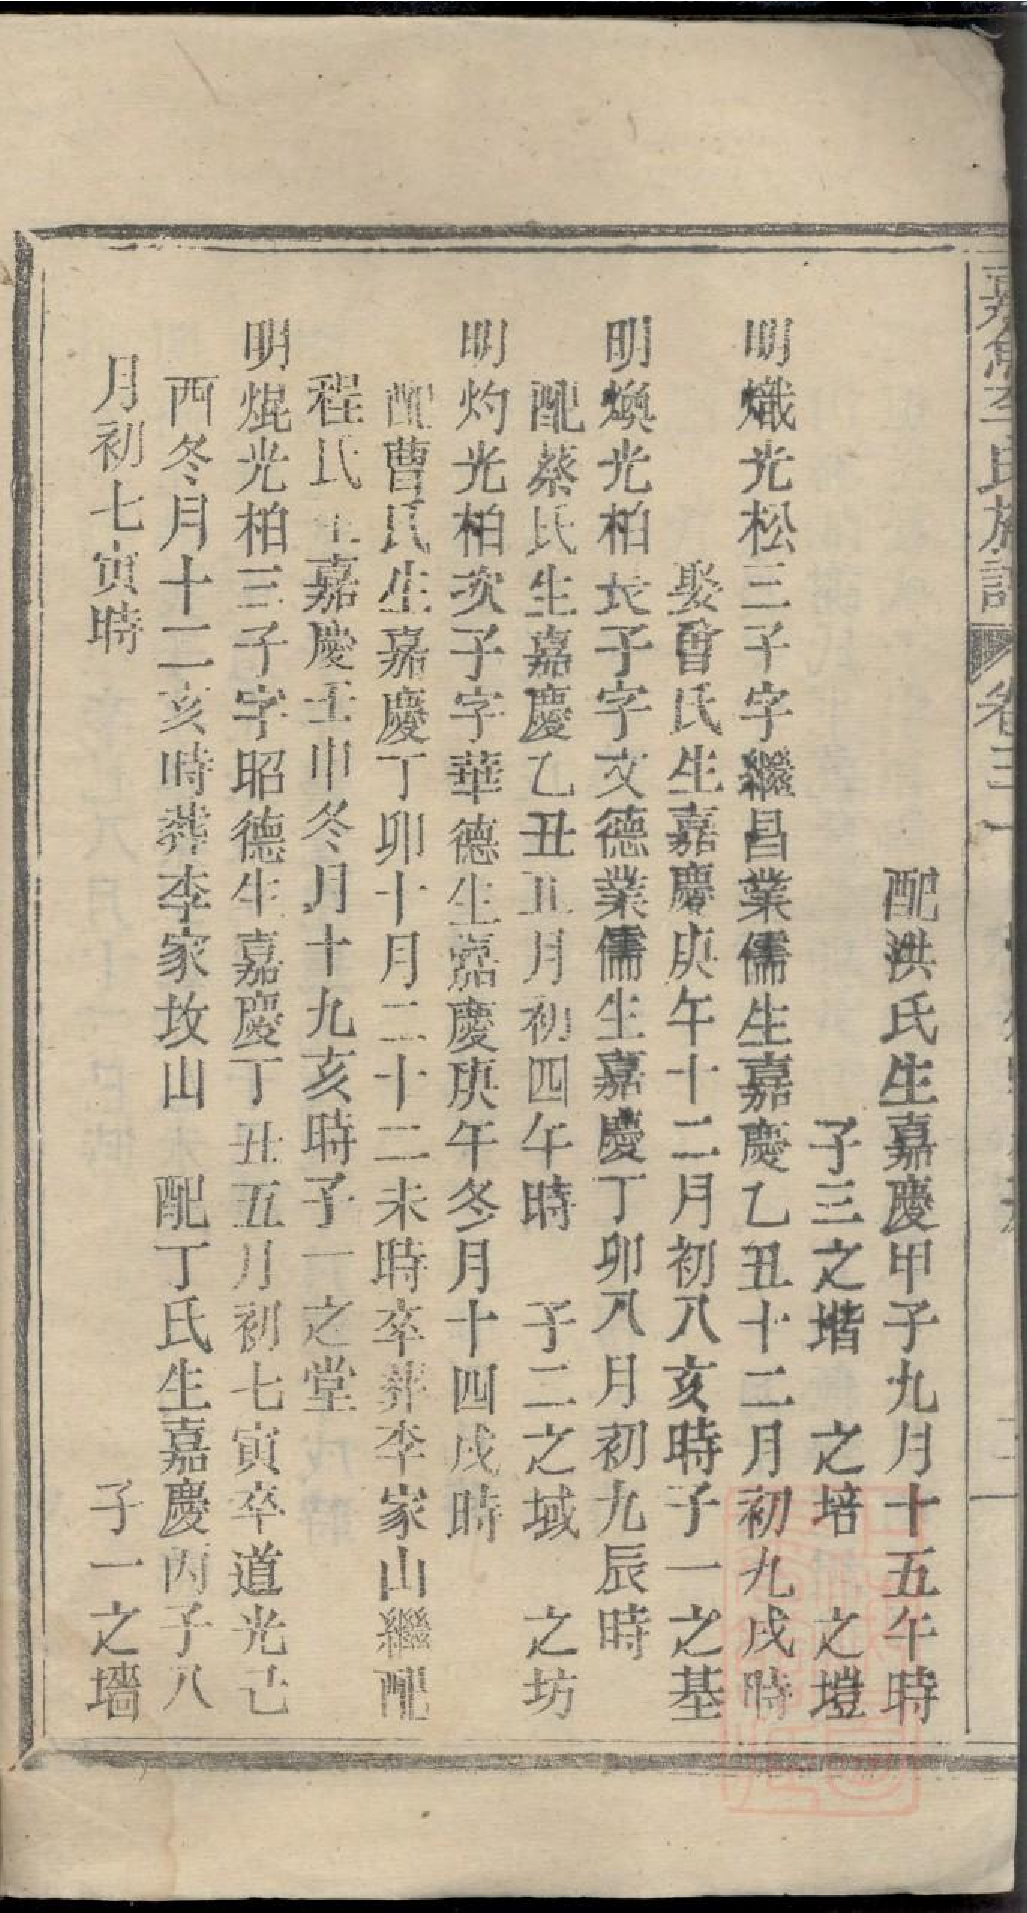 李氏族譜 卷三
配洪氏生嘉慶甲子九月十五午時
子三之堦 之培 之塏
明熾光松三子字繼昌業儒生嘉慶乙丑十二月初九戌時
娶曾氏生嘉慶庚午十二月初八亥時子一之基
明煥光柏長子字文德業儒生嘉慶丁卯八月初九辰時
配蔡氏生嘉慶乙丑五月初四午時 子二之域 之坊
明灼光柏次子字華德生嘉慶庚午冬月十四戌時
配曹氏生嘉慶丁卯十月二十二未時卒葬李家山繼配
程氏生嘉慶壬申冬月十九亥時子一之堂
明焜光柏三子字昭德生嘉慶丁丑五月初七寅卒道光己
酉冬月十二亥時葬李家坟山 配丁氏生嘉慶丙子八
月初七寅時 子一之墻